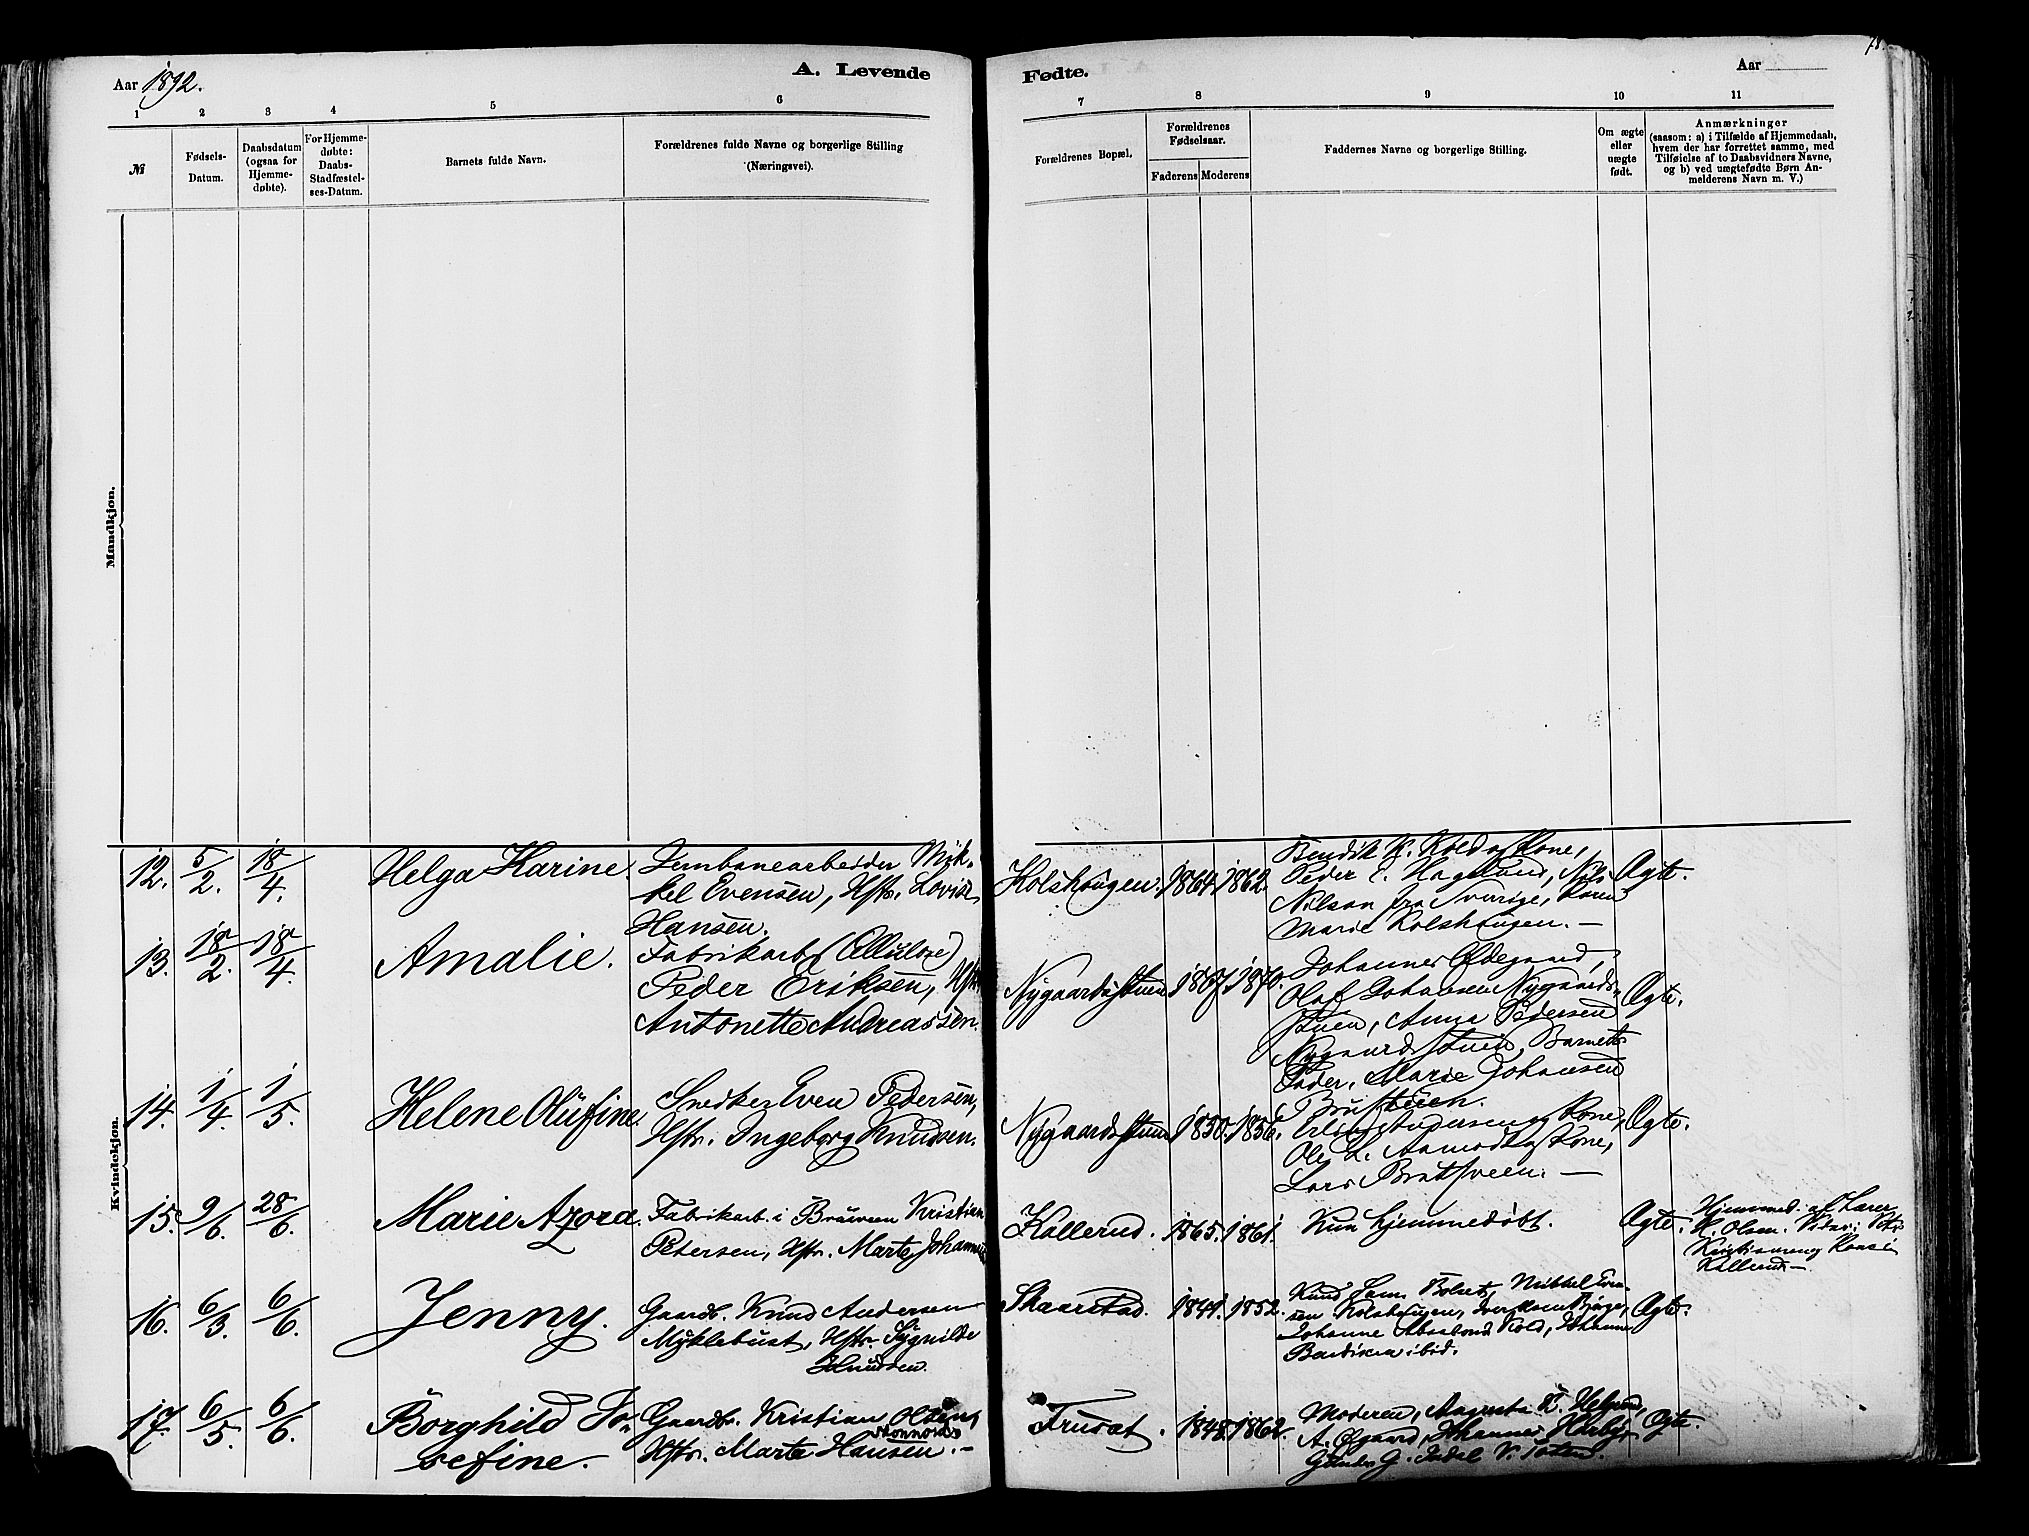 78.
Aar 1892.
A. Levende
Fødte.
Aar
1 2 3 4 5 6
7 8 9 10 11
№
Fødsels-
Datum.
Daabsdatum
(ogsaa for
Hjemme-
døbte).
For Hjemme-
døbte:
Daabs-
Stadfæstel-
ses-Datum.
Barnets fulde Navn.
Forældrenes fulde Navne og borgerlige Stilling
(Næringsvei).
Forældrenes Bopæl.
Forældrenes
Fødselsaar.
Faderens Moderens
Faddernes Navne og borgerlige Stilling.
Om ægte
eller
uægte
født.
Anmærkninger
(saasom: a) i Tilfælde af Hjemmedaab,
hvem der har forrettet samme, med
Tilføielse af to Daabsvidners Navne,
og b) ved uægtefødte Børn An-
melderens Navn m. V.)
Mandkjøn.
Kvindekjøn.
12. 5/2. 18/4. Helga Karine
Jernbanearbeider Mik-
kel Evensen, Hstr. Lovise
Hansen.
Kolshaugen. 1864. 1862.
Bendik K. Kold og Kone,
Peder E. Haglund, Nils
Nilsen fra Sverige, Karen
Marie Kolshaugen. —
Ægte.
13. 18/2. 18/4. Amalie.
Fabrikarb. (Cellulose)
Peder Eriksen, Hstr.
Antonette Andreassen.
Nygaardsstuen 1867. 1870.
Johannes Ødegaard,
Olaf Johansen Nygaards-
stuen, Anna Pedersen
Nygaardsstuen, Barnets
Fader, Marie Johansen
Brustuen.
Ægte.
14. 1/4. 1/5. Helene Olufine.
Snedker Even Pedersen,
Hstr. Ingeborg Knudsen.
Nygaardsstuen 1850. 1856.
Kone,
Ole L. Aamodt og Kone,
Lars Bratsveen. —
Ægte.
15. 9/6. 28/6. Marie Azora.
Fabrikarb. i Bruveen Kristian
Petersen, Hstr. Marte Johannes
Kallerud. 1865. 1861.
Kun hjemmedøbt.
Ægte.
Hjemmed. af Lærer
H. Olsen.
Kallerud —
16. 6/3. 6/6. Jenny.
Gaardb. Knud Andersen
Myklebust, Hstr. Sygnilde
Knudsen.
Skaarstad. 1841. 1852.
Knud Sam. Mikkel Even-
sen Kolshaugen,
Johanne Kold, Johanne
ibid.
Ægte.
17. 6/5. 6/6. Borghild Jo-
sefine.
Gaardbr. Kristian Olsen,
Hstr. Marte Hansen. —
Frusæt. 1848. 1862.
Moderen, Augusta K.
A. Øgaard, Johannes
V. Toten.
Ægte.